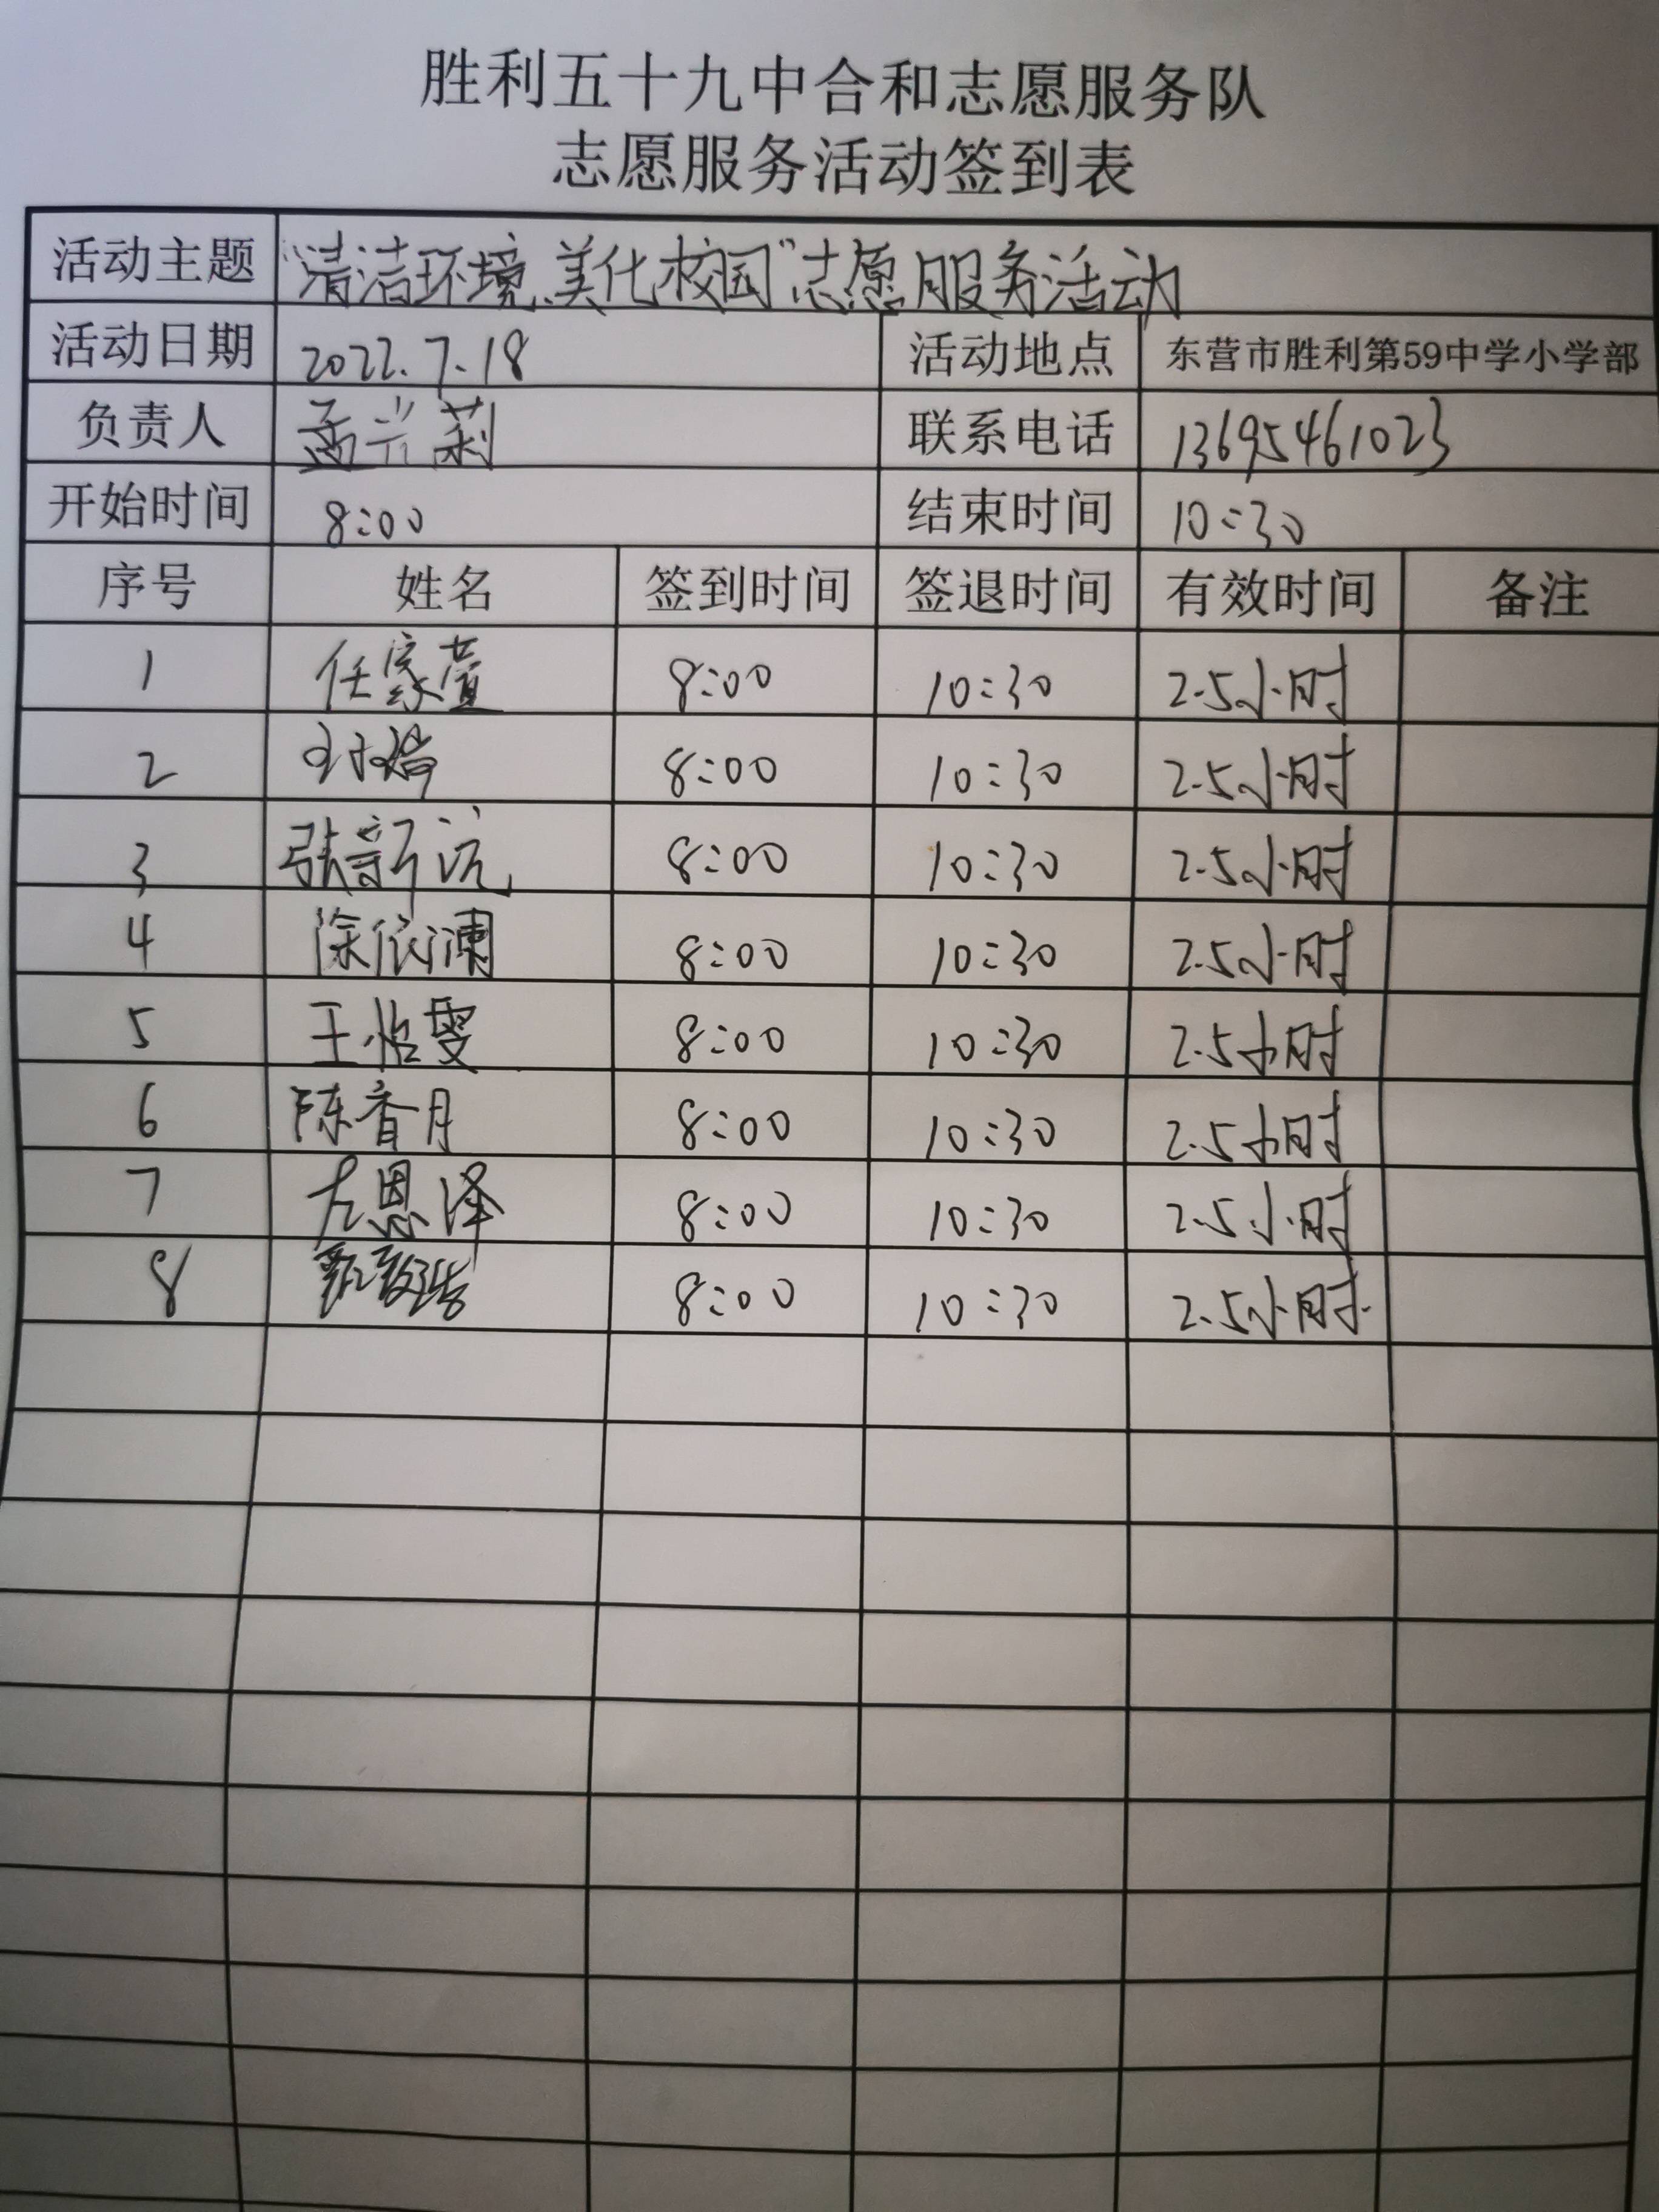 胜利五十九中合和志愿服务队
志愿服务活动签到表
活动主题 "清洁环境、美化校园"志愿服务活动
活动日期 2022.7.18 活动地点 东营市胜利第59中学小学部
负责人 孟兰莉 联系电话 13695461023
开始时间 8:00 结束时间 10:30
序号 姓名 签到时间 签退时间 有效时间 备注
1 任家萱 8:00 10:30 2.5小时
2 8:00 10:30 2.5小时
3 张新沆 8:00 10:30 2.5小时
4 徐依澜 8:00 10:30 2.5小时
5 王怡雯 8:00 10:30 2.5小时
6 陈香月 8:00 10:30 2.5小时
7 左恩泽 8:00 10:30 2.5小时
8 8:00 10:30 2.5小时.